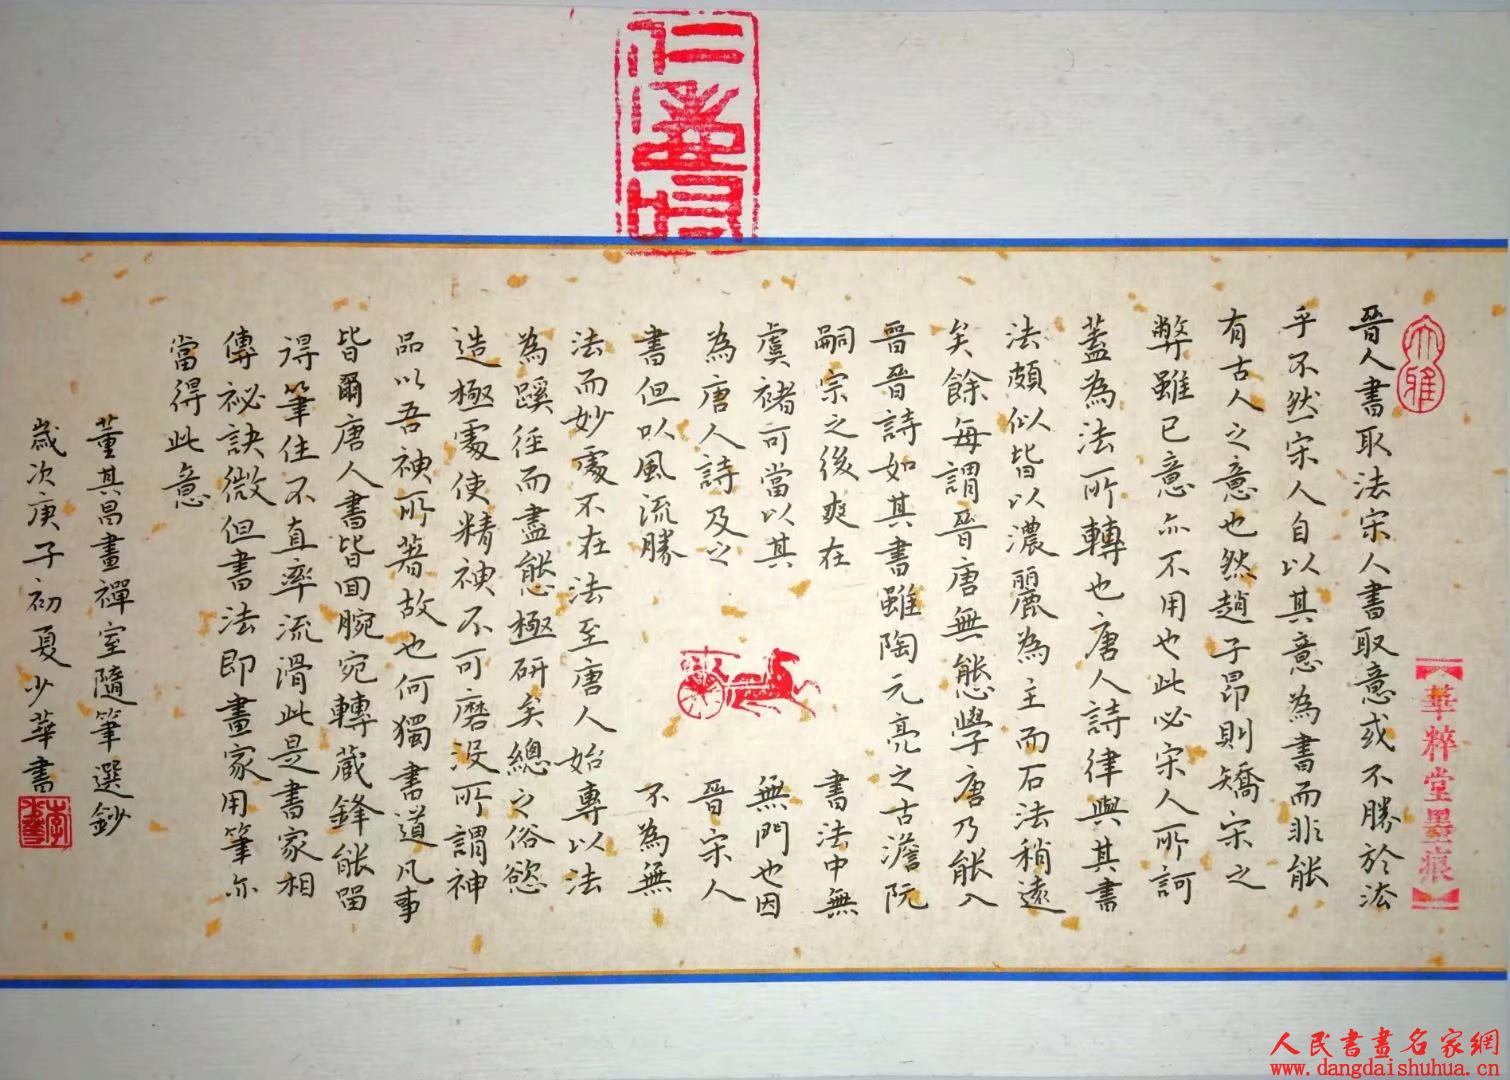 大雅
【華粹堂墨痕】
晉人書取法宋人書取意或不勝於法
乎不然宋人自以其意為書而非能
有古人之意也然趙子昂則矯宋之
弊雖已意亦不用也此必宋人所訶
蓋為法所轉也唐人詩律與其書
法頗似皆以濃麗為主而石法稍遠
矣餘每謂晉唐無態學唐乃能入
晉晉詩如其書雖陶元亮之古澹阮
嗣宗之後爽在書法中無
虞褚可當以其無門也因
為唐人詩及之晉宋人
書但以風流勝不為無
法而妙處不在法至唐人始專以法
為蹊徑而盡態極研矣總之俗慾
造極處使精神不可磨没所謂神
品以吾神所著故也何獨書道凡事
皆爾唐人書皆回腕宛轉蔵鋒能留
得筆住不直率流滑此是書家相
傳祕訣微但書法即畫家用筆亦
當得此意
董其昌畫禪室隨筆選鈔
歲次庚子初夏少華書
人民書畫名家網
www.dangdaishuhua.cn